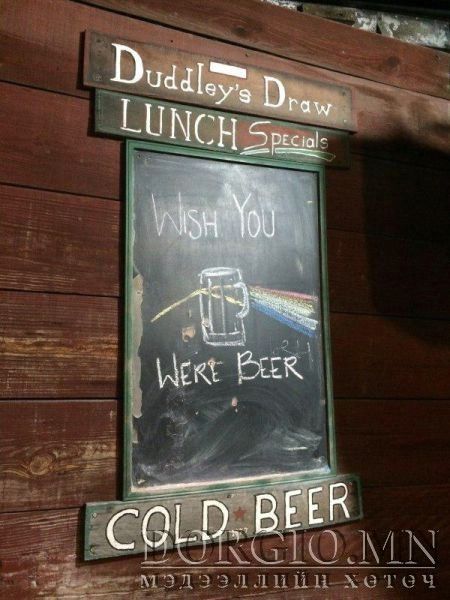 Duddley's Draw
LUNCH Specials
WISH YOU
WERE BEER
COLD BEER
DORGIO.MN
МЭДЭЭЛЛИЙН ХӨТӨЧ